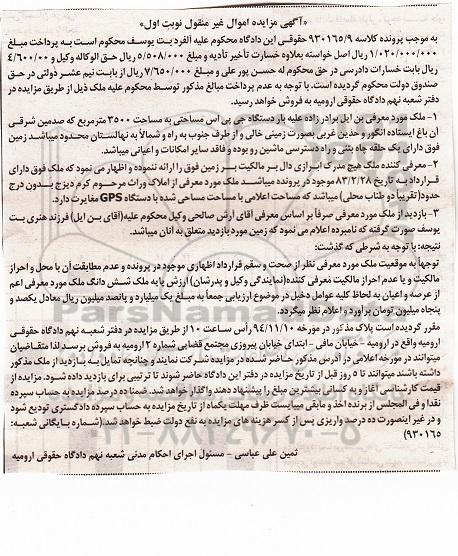 «آگهی مزایده اموال غیر منقول نوبت اول»
به موجب پرونده کلاسه ۹۳۰۱۶۵/۹ حقوقی این دادگاه محکوم علیه الفرد بت یوسف محکوم است به پرداخت مبلغ
۱/۰۲۰/۰۰۰/۰۰۰ ریال اصل خواسته بعلاوه خسارت تأخیر تأدیه و مبلغ ۵/۵۰۸/۰۰۰ ریال در حق الوکاله وکیل و ۴/۶۰۰/۰۰
ریال بابت خسارات دادرسی در حق محکوم له حسن پور علی و مبلغ ۷/۶۵۰/۰۰۰ ریال از بابت نیم عشر دولتی در حق
صندوق دولت محکوم گردیده است. با توجه به عدم پرداخت مبالغ مذکور توسط محکوم علیه ملک ذیل از طریق مزایده در
دفتر شعبه نهم دادگاه حقوقی ارومیه به فروش خواهد رسید.
۱- ملک مورد معرفی بن ایل برادر زاده علیه یار دستگاه جی پی اس مساحتی به مساحت ۳۵۰۰ مترمربع که صدمین شرقی
آن باغ ایستاده انگور و حدین غربی بصورت زمینی خالی و از طرف جنوب به راه و شمالاً به نهالستان محدود میباشد زمین
فوق دارای یک حلقه چاه بتنی و راه دسترسی ماشین رو بوده و فاقد سایر امکانات و اعیانی میباشد.
۲- معرفی کننده ملک هیچ مدرک ابرازی دال بر مالکیت بر زمین فوق را ارائه ننموده و اظهار می نمود که ملک فوق دارای
قرارداد به تاریخ ۸۳/۲/۲۸ موجود در پرونده میباشد ملک مورد معرفی از املاک وراث مرحوم کرم دیزج بدون درج
حدود(تقریبا دو طناب محلی) میباشد که مساحت اعلامی با مساحت مساحی شده با دستگاه GPS مغایرت دارد.
۳- بازدید از ملک مورد معرفی صرفاً بر اساس معرفی آقای ارش صالحی وکیل محکوم علیه(آقای بن ایل) فرزند هنری بت
یوسف صورت گرفته که نامبرده اعلام می نمود که زمین مورد بازدید متعلق به آنان میباشد.
نتیجه: با توجه به شرطی که گذشت:
توجهاً به موقعیت ملک مورد معرفی نظر از صحت و سقم قرارداد اظهاری موجود در پرونده و عدم مطابقت آن با محل و احراز
مالکیت و یا عدم احراز مالکیت معرفی کننده(نمایندگی وکیل و پدرشان) ارزش پایه ملک شش دانگ ملک مورد معرفی اعم
از عرصه و اعیان به لحاظ کلیه عوامل دخیل در موضوع ارزیابی جمعاً به مبلغ یک میلیارد و پانصد میلیون ریال معادل یکصد و
پنجاه میلیون تومان برآورد و اعلام نظر میگردد.
مقرر گردیده است پلاک مذکور در مورخه ۹۴/۱۱/۱۰ رأس ساعت ۱۰ از طریق مزایده در دفتر شعبه نهم دادگاه حقوقی
ارومیه واقع در ارومیه - خیابان مافی - ابتدای خیابان پیروزی مجتمع قضایی شماره ۲ ارومیه به فروش برسد لذا متقاضیان
میتوانند در مورخه اعلامی در آدرس مذکور حاضر شده در مزایده شرکت نمایند و چنانچه تمایل به بازدید از ملک مذکور
داشته باشند میتوانند تا ۵ روز قبل از تاریخ مزایده در دفتر این دادگاه حاضر شوند تا ترتیبی برای بازدید داده شود. مزایده از
قیمت کارشناسی آغاز و به کسانی بیشترین مبلغ را پیشنهاد دهند واگذار خواهد شد. ضمناً ده درصد مزایده به حساب سپرده
نقد و فی المجلس از برنده اخذ و مابقی میبایست ظرف مهلت یکماه از تاریخ مزایده به حساب سپرده دادگستری تودیع شود
و در غیر اینصورت ده درصد واریزی پس از کسر هزینه های مزایده به نفع دولت ضبط خواهد شد.(شماره بایگانی شعبه:
۹۳۰۱۶۵)
ثمین علی عباسی - مسئول اجرای احکام مدنی شعبه نهم دادگاه حقوقی ارومیه